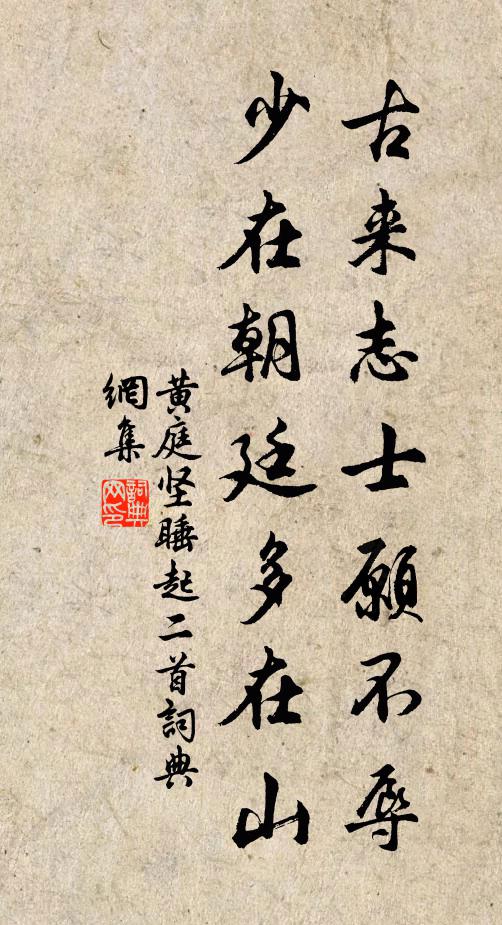 古来志士願不辱
少在朝廷多在山
黄庭坚睡起二首詞典
網集
詞典
网印